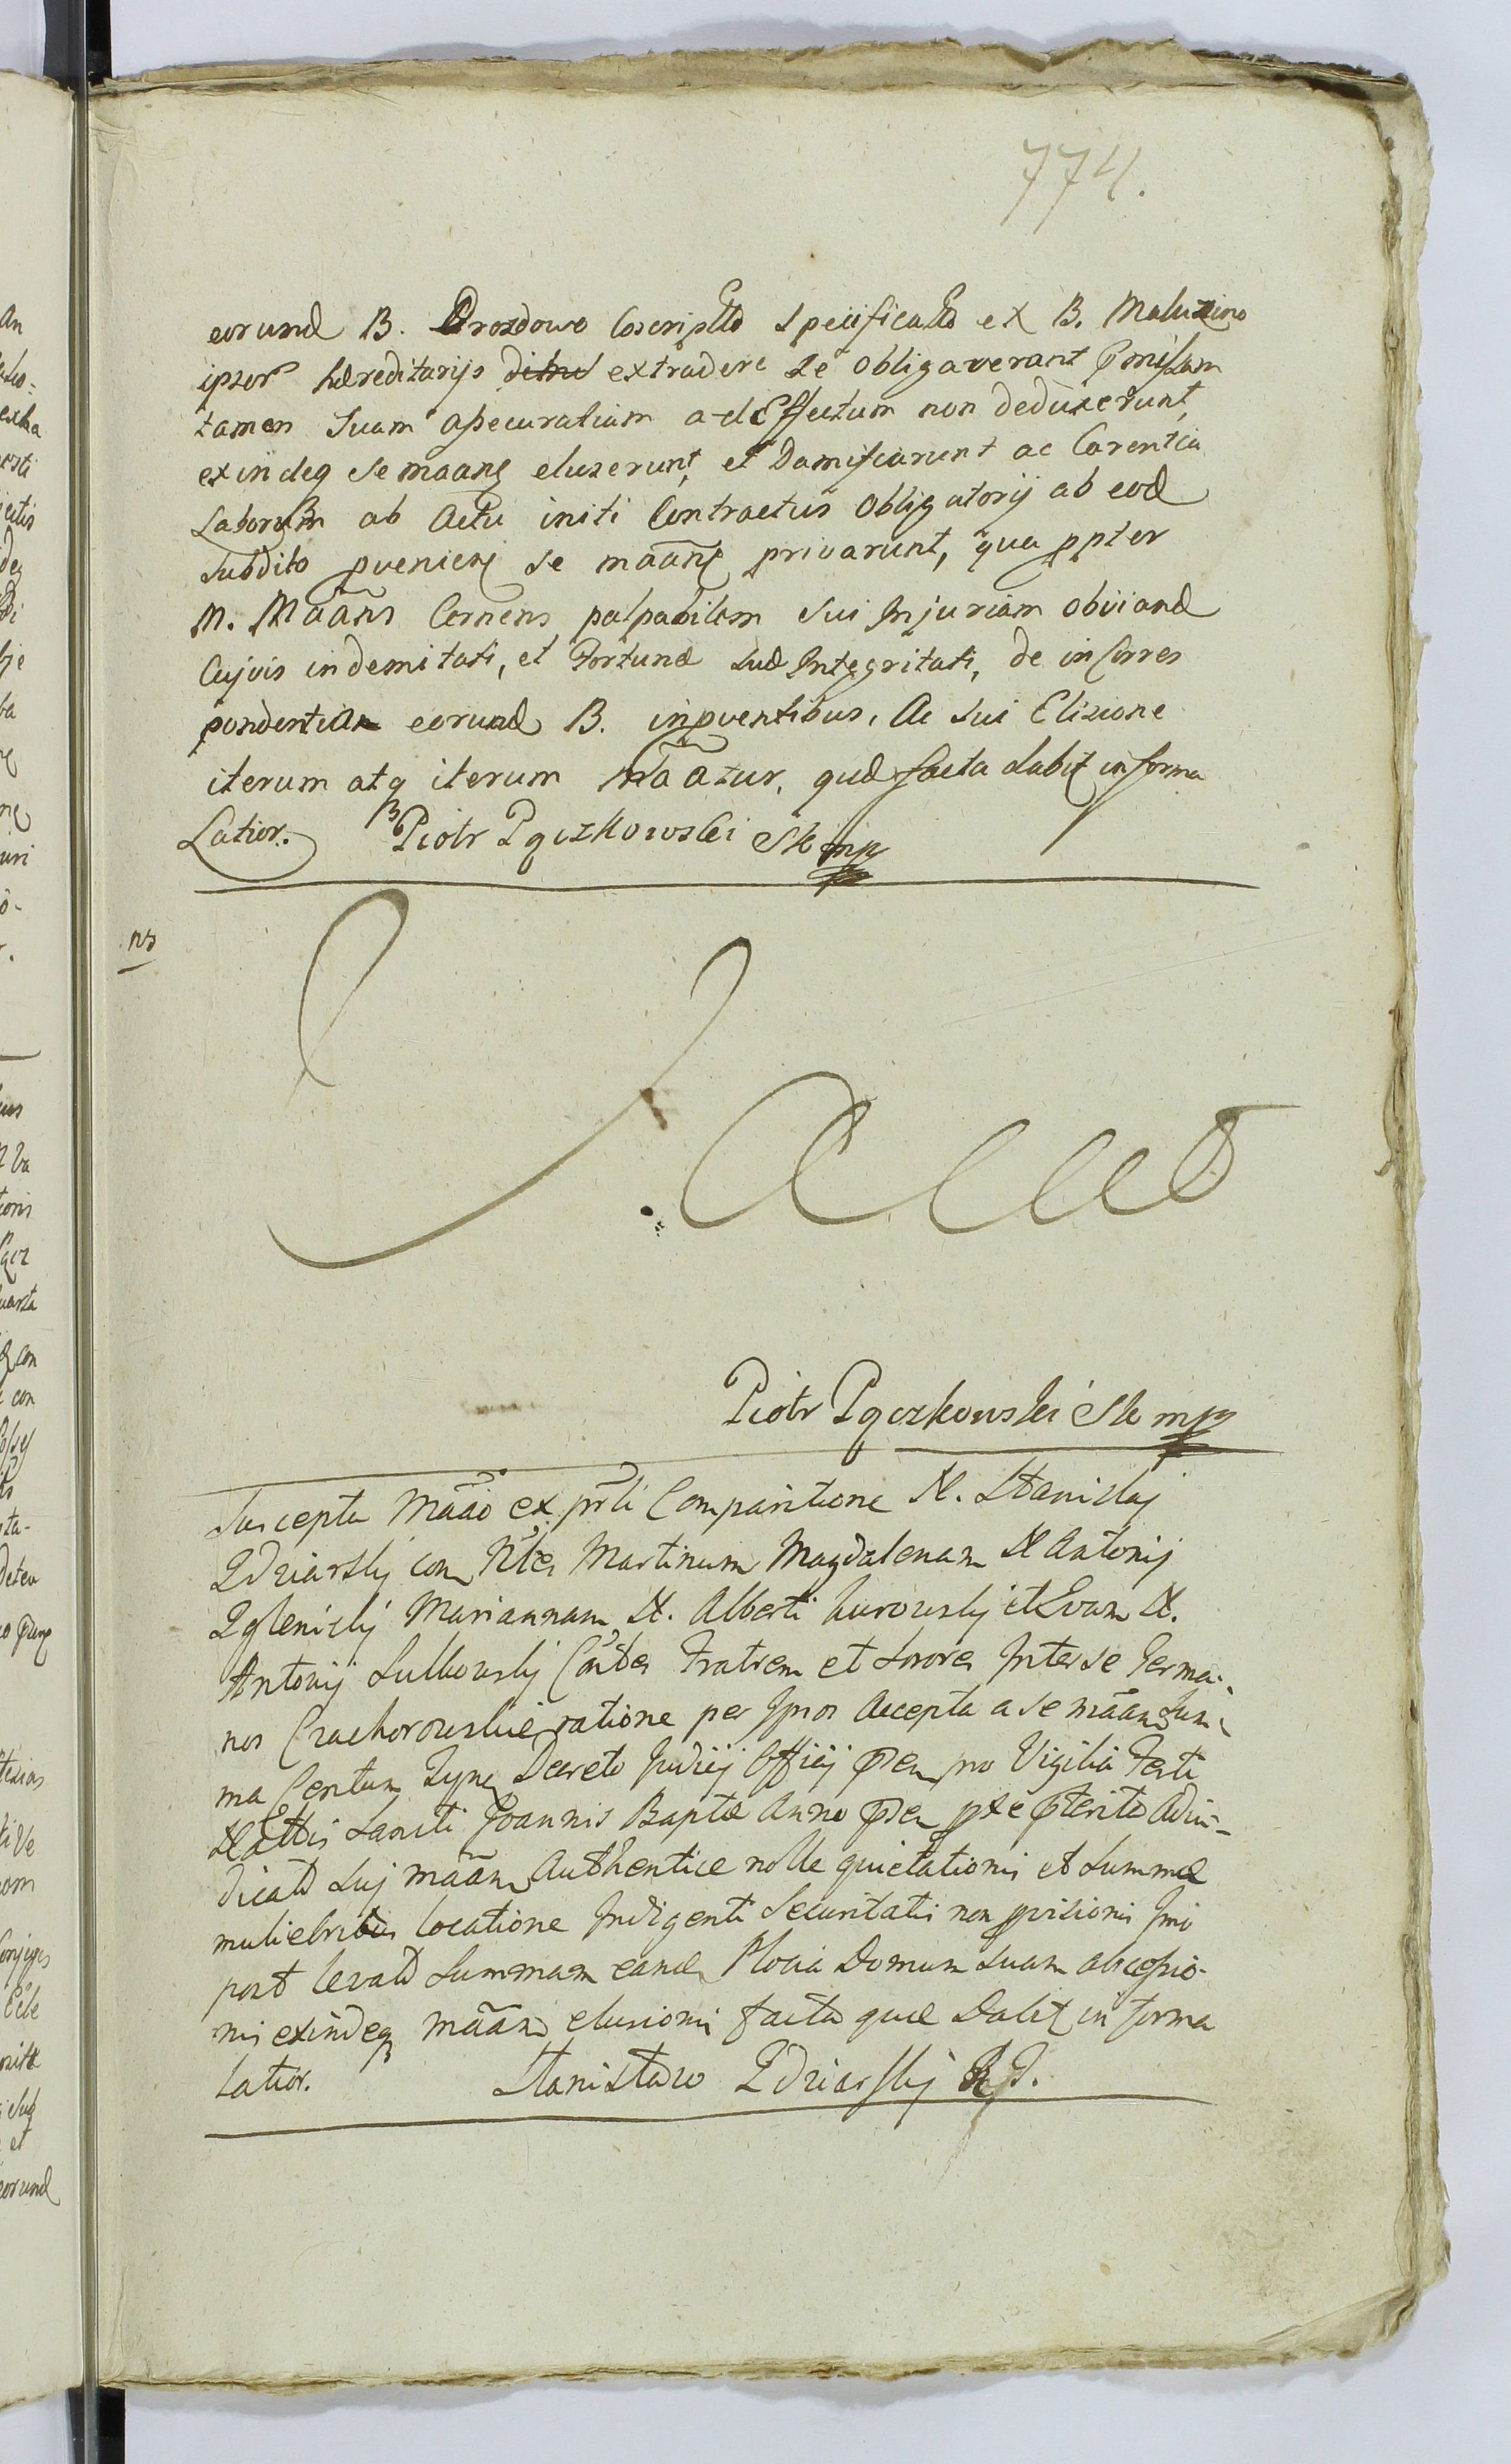 774.
eorund B. Drozdowo Coscriptto Specificatto ex B. Maluzino
ipsor hæreditarijs extradere se obligaverant pmissam
tamen Suam assecurationem ad Effectum non deduxerunt,
exindeq se maang eluserunt, et Damificarunt ac Carentia
Laborum ab Actu initi Contractus Obligatorij ab eod
Subdito pveniens se maang privarunt, qua ppter
M. Maans Cernens palpabilem sui Injuriam obviand
Cujvis indemitati, et Fortunæ suæ Integritati, de in Corres
pondentia eorund B. inpventibus, Ac sui Elisione
iterum atq iterum Maatur, quæ facta dabit in forma
Latior. Piotr Pączkowski Sk mp
ns
Piotr Pączkowski Sk mp
Suscepta Maao ex prti Comparitione N. Stanislaj
Zdziarskj con Nbles Martinum Magdalenam N Antonij
Zglenickj Mariannam N. Alberti Kurowskj et Evam N.
Antonij Sulkowskj Cortes Fratrem et Sorores Inter se Germa-
nos Crachorowskie ratione per Ipsos Accepta a se maan Sum-
ma Centum Tynf Decreto Judicij Officij pren pro Vigilia Festi
Nattis Sancti Joannis Baptæ Anno pren pxe pterito Adiu-
dicatæ Suj maan Authentice nolle quietationis et Summæ
muliebribus locatione Indigenti Securitatis non pvisionis Imo
post levatæ Summam eand Plocia Domum Suam abscessio-
nis exindeq maan elusionis facta quæ Dabit in forma
latior. Stanisław Zdziarskj